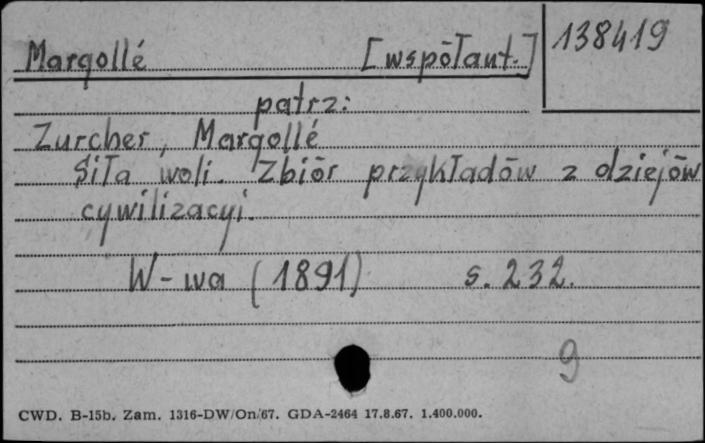 138419
Margollé [wspōłaut.]
patrz:
Zurcher, Margollé
Siła woli. Zbiōr przykładōw z dziejōw
cywilizacyi.
W-wa (1891) s. 232.
9
CWD. B-15b. Zam. 1316-DW/On/67. GDA-2464 17.8.67. 1.400.000.